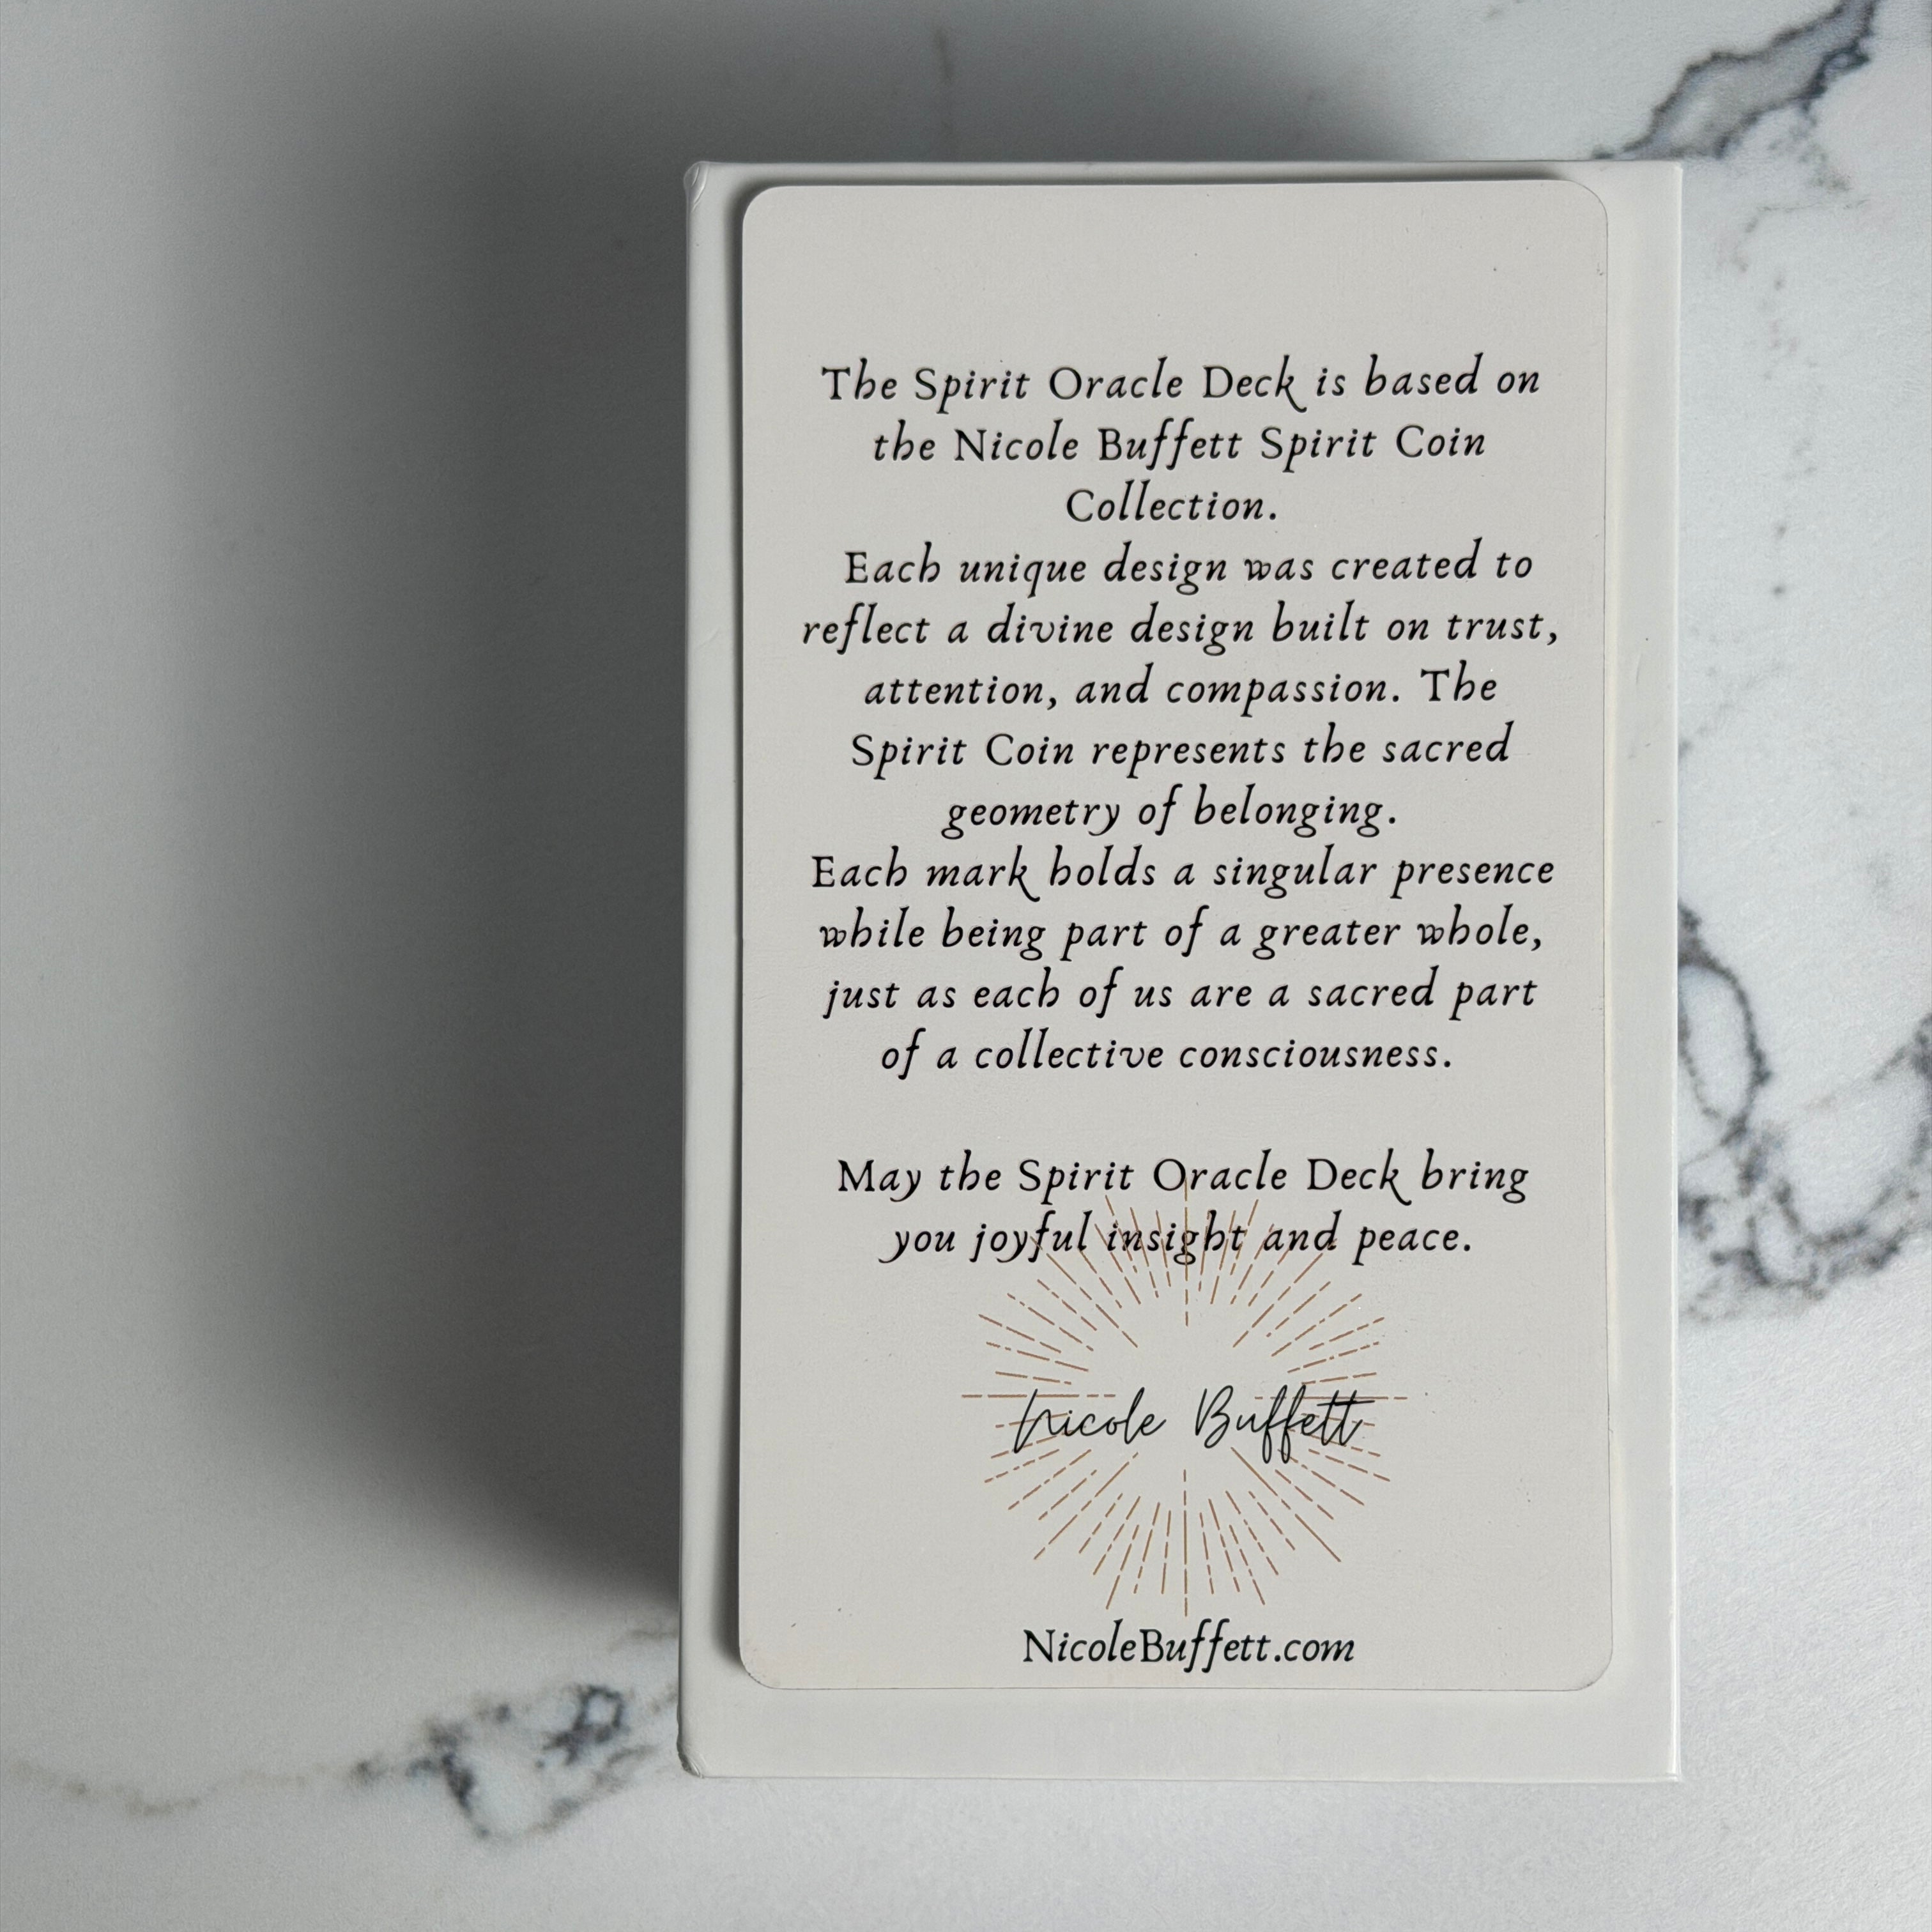 The Spirit Oracle Deck is based on
the Nicole Buffett Spirit Coin
Collection.
Each unique design was created to
reflect a divine design built on trust,
attention, and compassion. The
Spirit Coin represents the sacred
geometry of belonging.
Each mark holds a singular presence
while being part of a greater whole,
just as each of us are a sacred part
of a collective consciousness.
May the Spirit Oracle Deck bring
you joyful insight and peace.
Nicole Buffett
NicoleBuffett.com